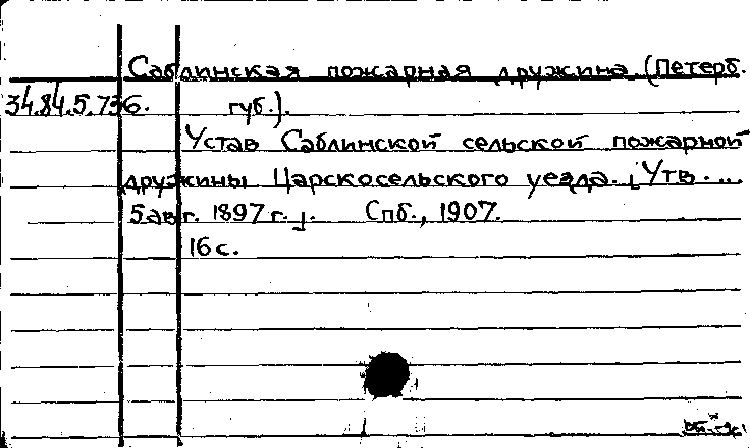 Саблинская пожарная дружина (Петерб.
34.84.5.736. губ.).
Устав Саблинской сельской пожарной
дружины Царскосельского уезда. [Утв. ...
5 авг. 1897 г.]. Спб., 1907.
16 с.